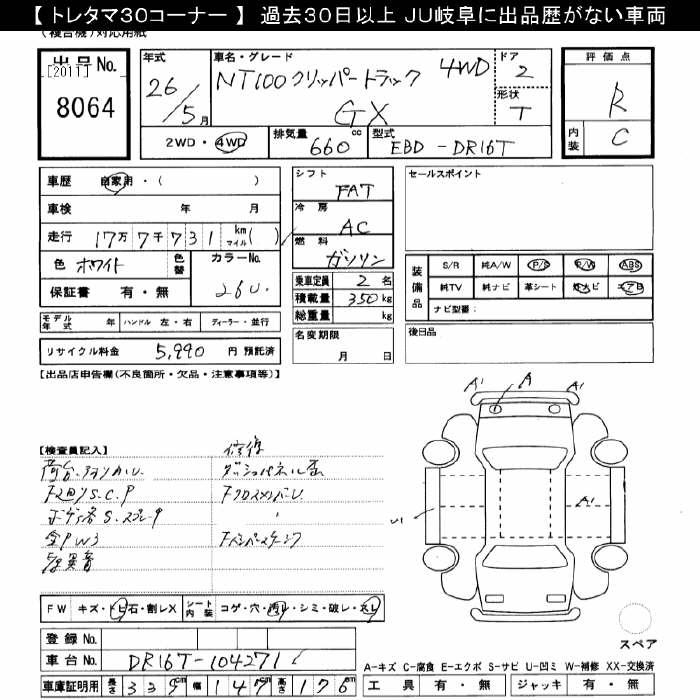 【 トレタマ30コーナー 】 過去30日以上 JU岐阜に出品歴がない車両
(複合機)対応用紙
出品No.
[2011]
8064
年式
26/5月
車名・グレード
NT100クリッパートラック 4WD
GX
ドア
2
形状
T
評価点
R
内装
C
2WD・4WD
排気量
660cc
型式
EBD-DR16T
車歴 自家用・( )
車検 年 月
走行 17万7千731 km マイル( )
色 ホワイト
色替
カラーNo.
26U
保証書 有・無
モデル年式 年 ハンドル 左・右 ディーラー・並行
リサイクル料金 5,990 円 預託済
シフト
FAT
冷房
AC
燃料
ガソリン
乗車定員 2 名
積載量 350 kg
総重量 kg
名変期限
月 日
セールスポイント
装備品
S/R 純A/W P/S P/W ABS
純TV 純ナビ 革シート エアB
ナビ型番:
後日品
【出品店申告欄(不良箇所・欠品・注意事項等)】
【検査員記入】
修復
ダッシュパネル歪
荷台
F廻りS.C.P
異音
A' A A'
A'
U1
FW キズ・トビ石・割レX シート内装 コゲ・穴・汚レ・シミ・破レ・スレ
登録No.
車台No. DR16T-104271
車庫証明用 長さ 339cm 幅 147cm 高さ 176cm
スペア
A-キズ C-腐食 E-エクボ S-サビ U-凹ミ W-補修 XX-交換済
工具 有・無 ジャッキ 有・無